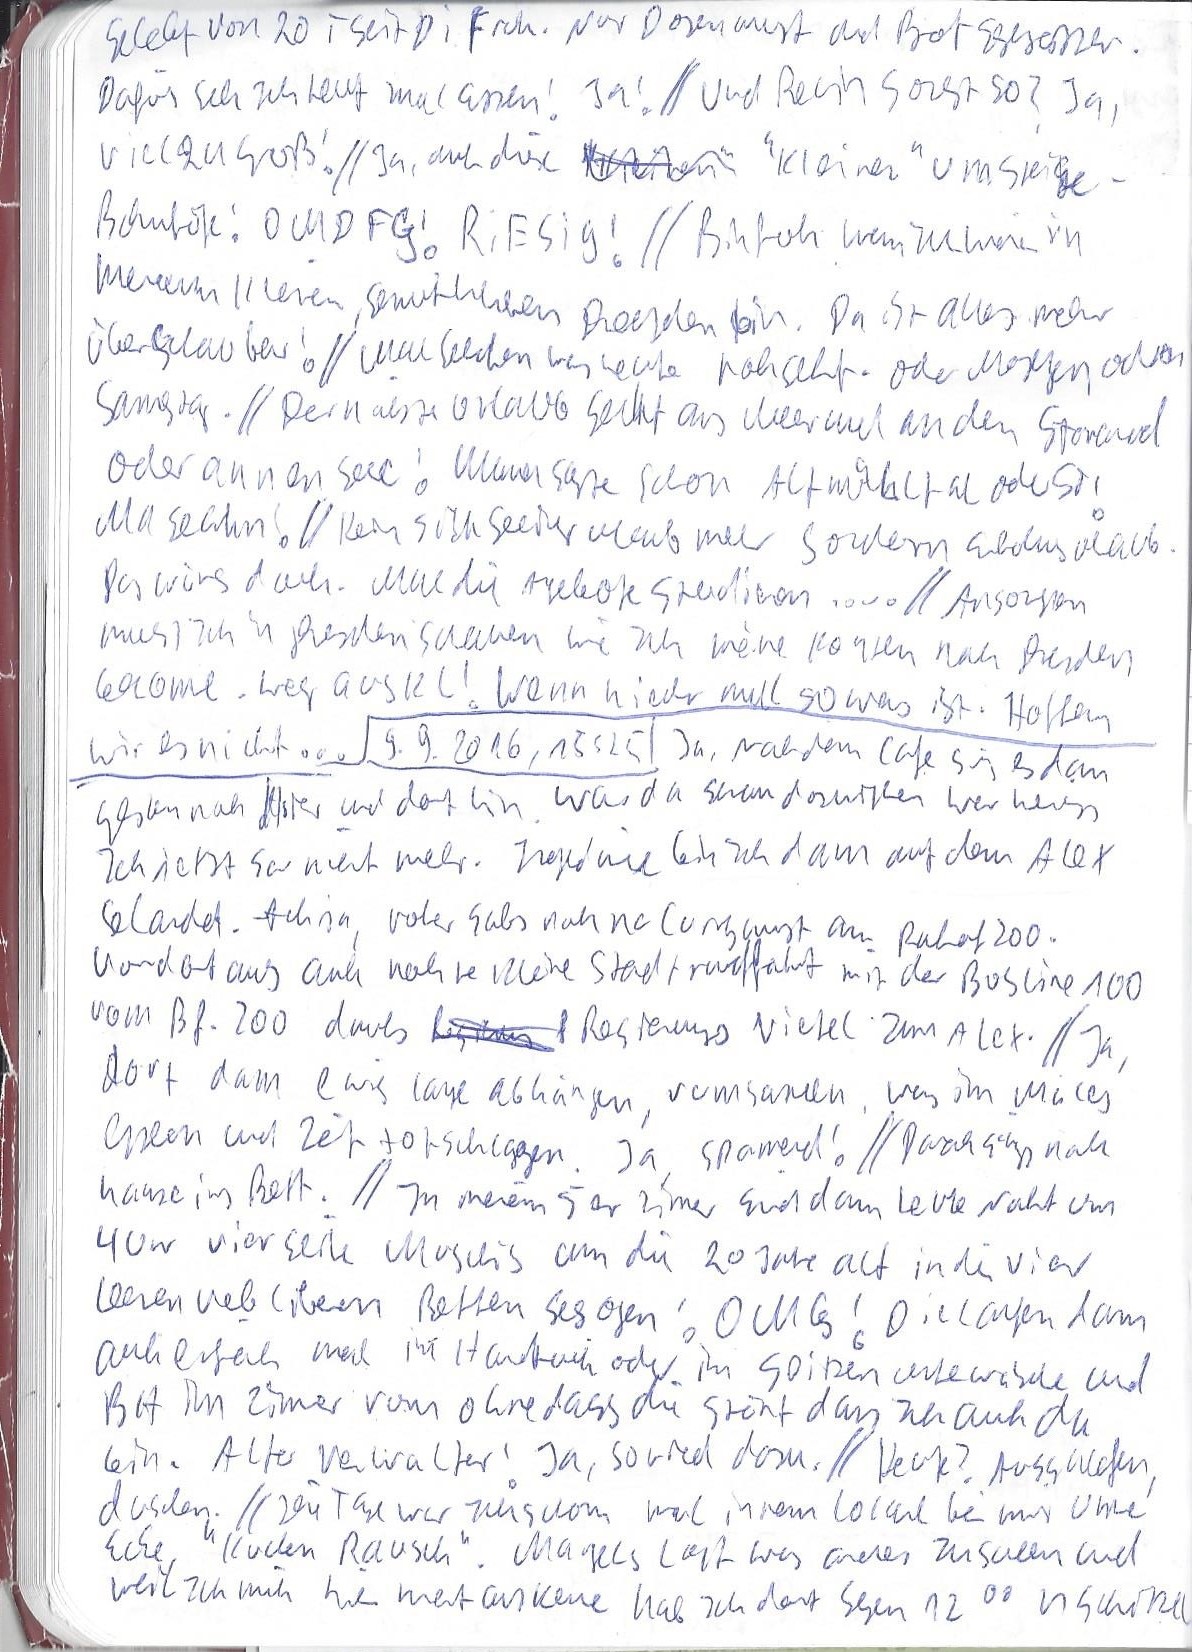 gelebt von 20 seit Di Früh. Nur Dosenwurst und Brot gegessen.
Dafür geh ich heut mal essen! Ja! // Und Berlin sonst so? Ja,
viel zu groß! // Ja, auch diese "kleinen" Umsteige-
Bahnhöfe! OMDFG! RiESig! // Bin froh wenn ich wieder in
meinem kleinen, gemütlichen Dresden bin. Da ist alles mehr
überschaubar! // Mal sehen was heute noch geht. Oder Morgen oder
Samstag. // Der nächste Urlaub geht ans Meer und an den Strand
oder an nen See! Mama sagte schon Altmühltal oder so!
Mal sehn! // Kein Urlaub mehr sondern Urlaub.
Das wärs doch. Mal die Angebote studieren .... // Ansonsten
muss ich in Dresden schauen wie ich meine Konten nach Dresden
bekomme. Weg aus KL! Wenn wieder mal so was ist. Hoffen
wir es nicht ... 9.9.2016, 15:25 Ja, nach dem Cafe ging es dann
gestern noch hier und dort hin. Wo ich da genau dazwischen war weiss
ich jetzt gar nicht mehr. Irgendwie bin ich dann auf dem Alex
gelandet. Achja, vorher gabs noch ne Currywurst am Bahnhof Zoo.
Von dort aus auch noch ne kleine Stadtrundfahrt mit der Buslinie 100
vom Bf. Zoo durchs Regierungs Viertel zum Alex. // Ja,
dort dann ewig lange abhängen, rumgammeln, was im Mäces
essen und Zeit totschlagen. Ja, spannend! // Danach gings nach
hause ins Bett. // In meinem 5er Zimmer sind dann heute Nacht um
4 Uhr vier geile Muschis um die 20 Jahre alt in die vier
leeren, Betten gezogen! OMG! Die laufen dann
auch einfach mal im Handtuch oder im Spitzenunterwäsche und
BH im Zimmer rum ohne dass die stört dass ich auch da
bin. Alter Verwalter! Ja, soviel dazu. // Heute? Ausschlafen,
duschen. // Tage war ich schon mal in nem Lokal bei mir Umme
Ecke, "Kuchen Rausch". Mangels Lust was anderes zu suchen und
weil ich mich hier nicht auskenne hab ich dort gegen 12 00 n Schnitzel